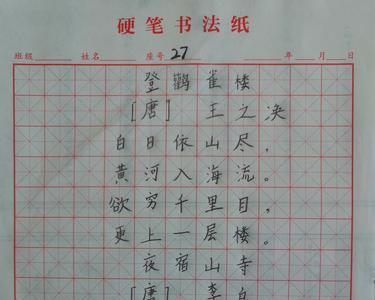 硬笔书法纸
班级 姓名 座号 27 年 月 日
登鸛雀楼
[唐] 王之涣
白日依山尽，
黄河入海流。
欲穷千里目，
更上一层楼。
夜宿山寺
[唐] 李白